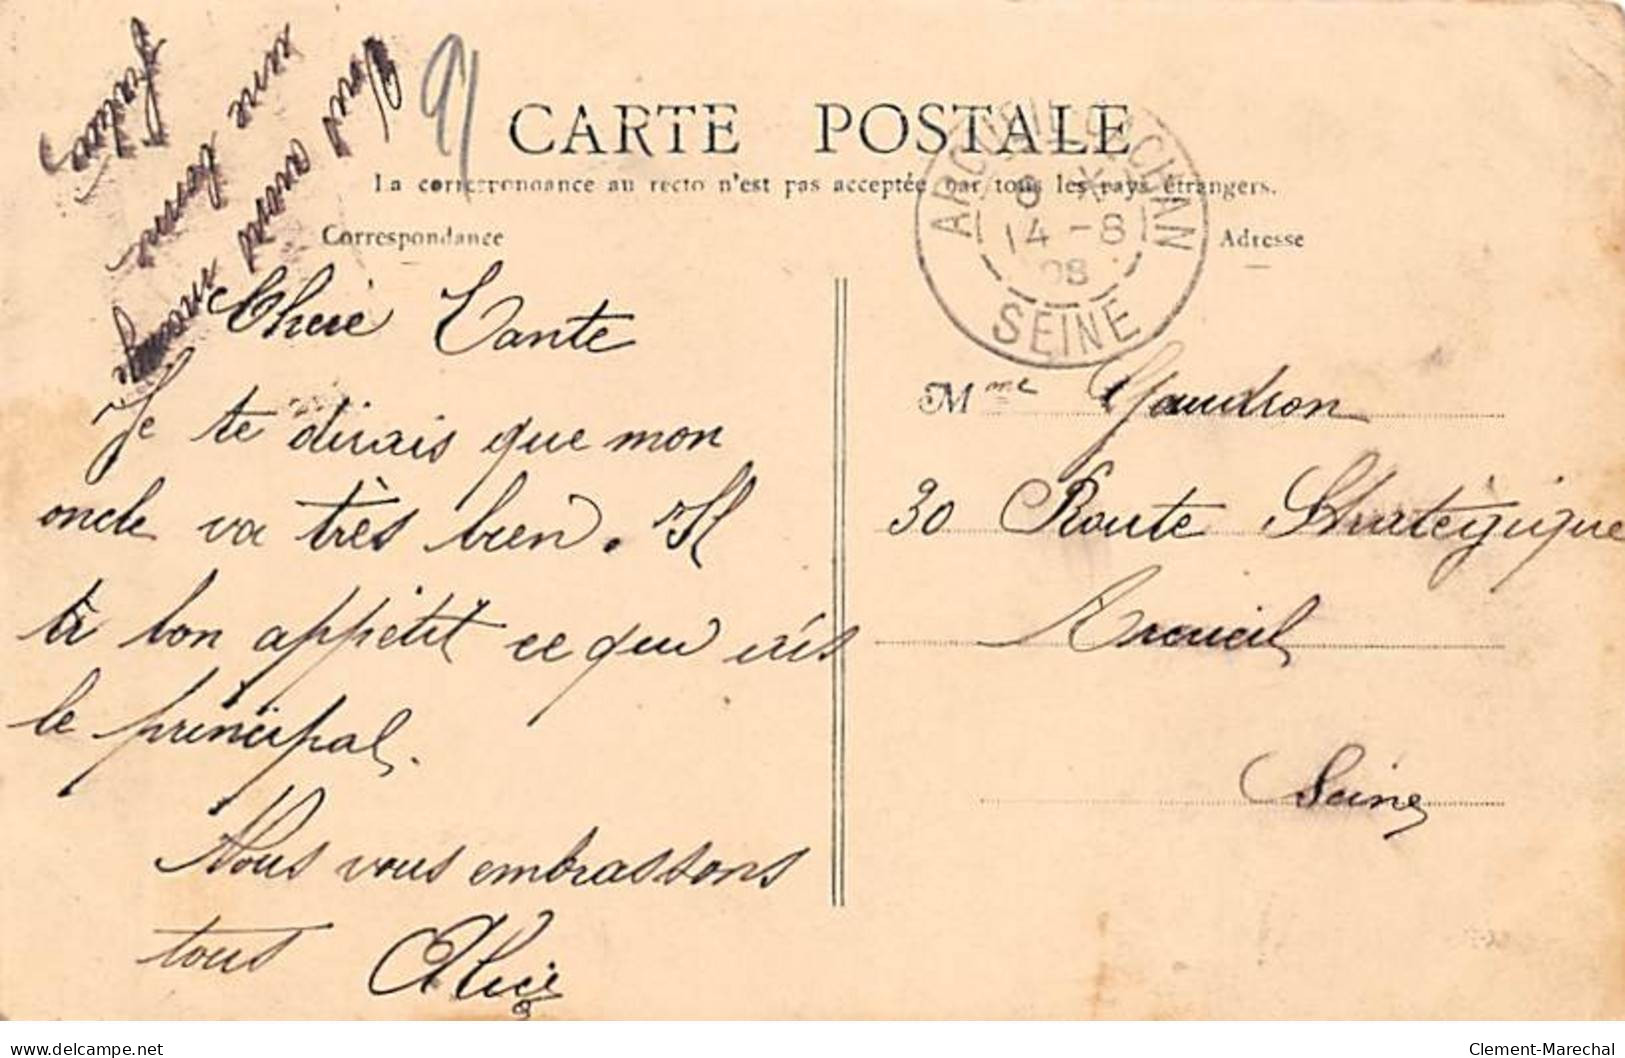 91
CARTE POSTALE
La correspondance au recto n'est pas acceptée par tous les pays étrangers.
Correspondance
Adresse
ARCUEIL-CACHAN
8 *
14 - 8
08
SEINE
Chère Tante
Je te dirais que mon
oncle va très bien. Il
à bon appétit ce qui est
le principal.
Nous vous embrassons
tous Alice
Mme Gaudron
30 Route Stratégique
Arcueil
Seine
delcampe.net
Clement-Marechal